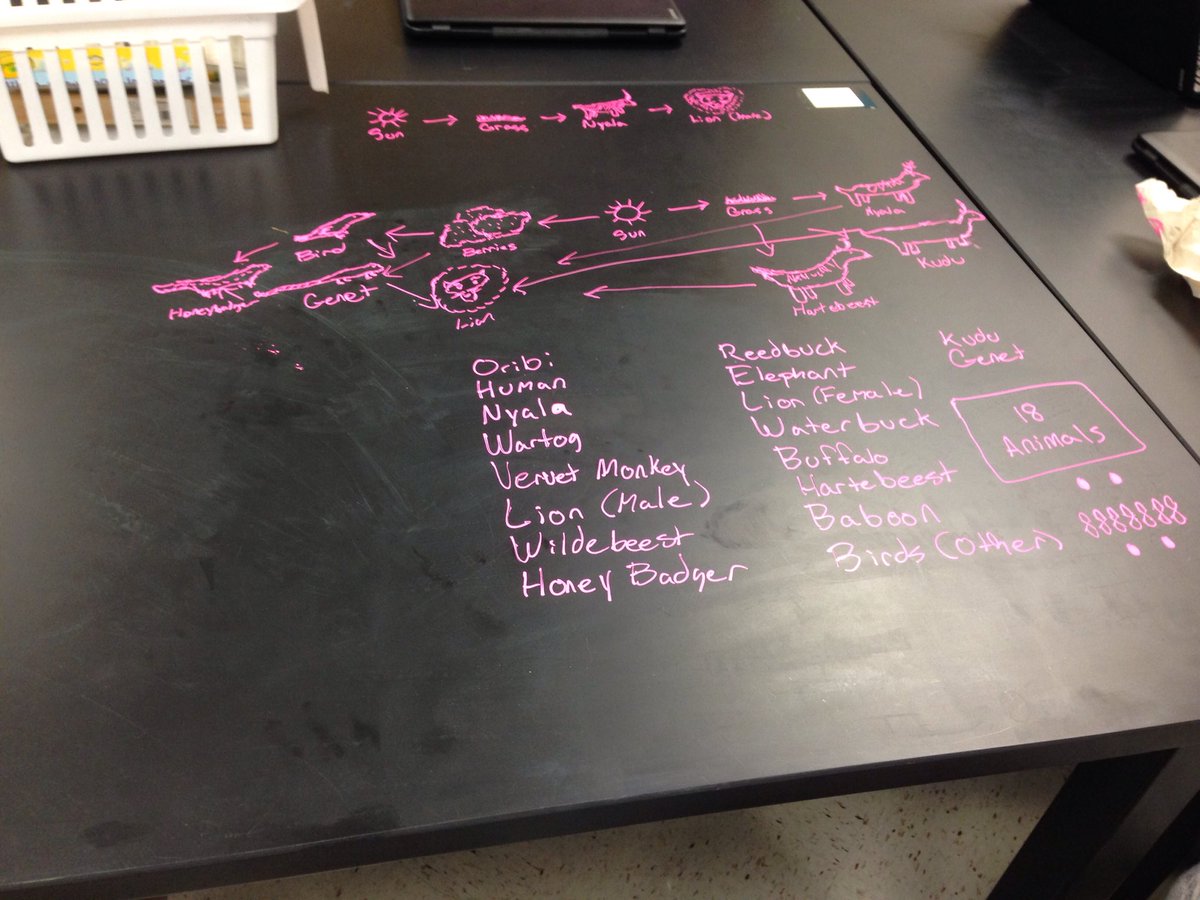 Sun → Grass → Nyala → Lion (Male)
Bird Berries Sun Grass Nyala
Honeybadger Genet Lion Hartebeest Kudu
Oribi
Human
Nyala
Wartog
Vervet Monkey
Lion (Male)
Wildebeest
Honey Badger
Reedbuck
Elephant
Lion (Female)
Waterbuck
Buffalo
Hartebeest
Baboon
Birds (Other)
Kudu
Genet
18
Animals